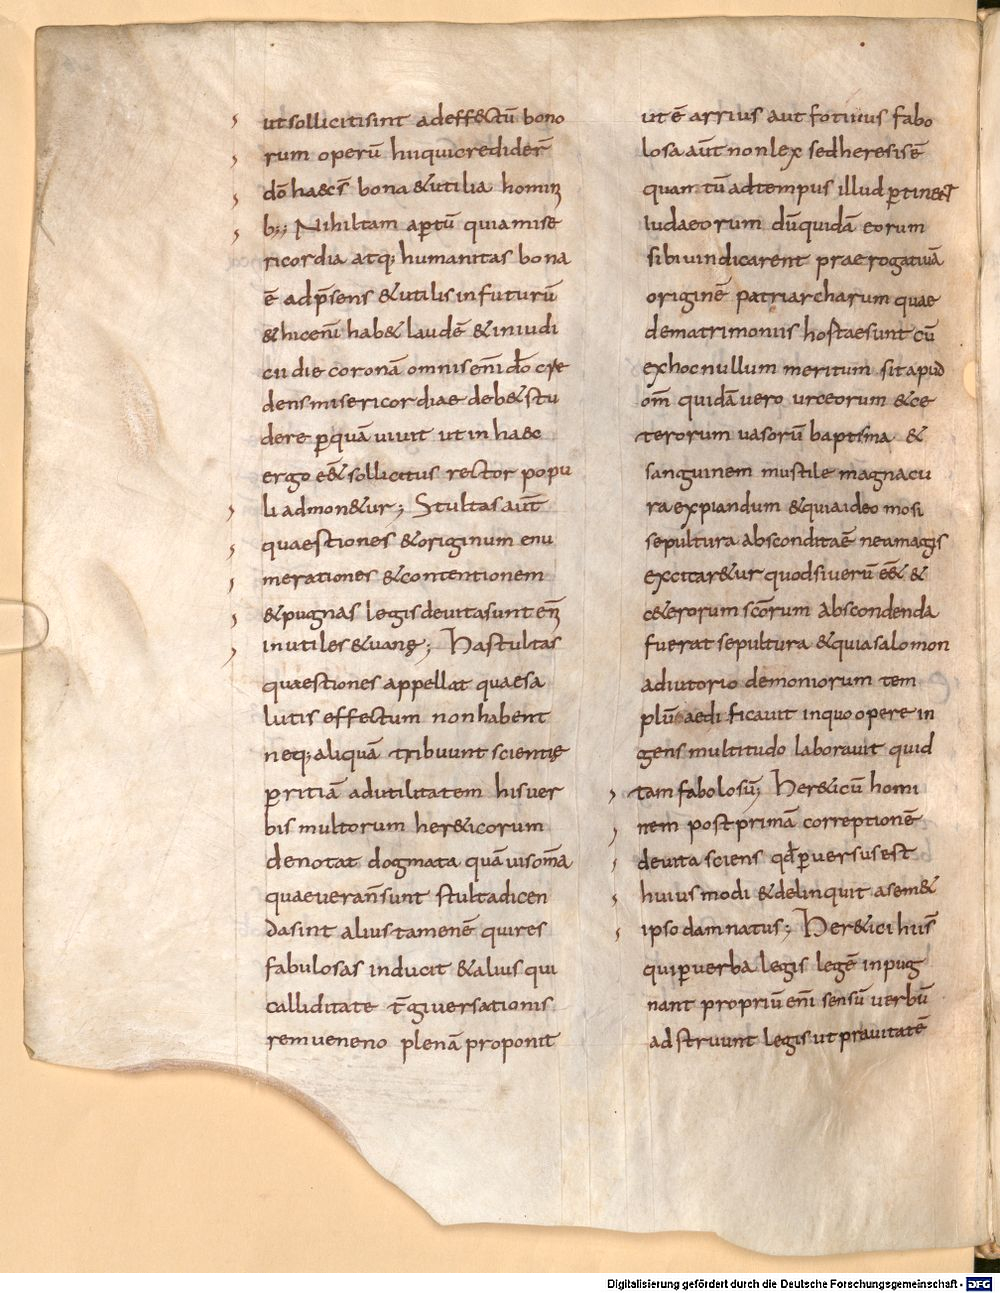 ut sollicitisint adeff&ctū bono
rum operū hii qui credider̄
dō haecs̄ bona &utilia hominƺ
b;; Nihil tam aptū quia mise
ricordia atq; humanitas bona
ē adp̄sens &utilis in futurū
&hic enī hab& laudē & in iudi
cii die coronā omnis enī dō cre
dens misericordiae deb& stu
dere ꝑquā uiuit ut in haec
ergo eē& sollicitus rector popu
li admon&ur; Stultas aūt
quaestiones &originum enu
merationes &contentionem
&pugnas legis deuita sunt enƺ
inutiles &uanę; Has stultas
quaestiones appellat quae sa
lutis effectum non habent
neq; aliquā tribuunt scientię
ꝑritiā ad utilitatem his uer
bis multorum her&icorum
denotat dogmata quā uis om̄a
quae ueran̄ sunt stulta dicen
da sint alius tamen ē qui res
fabulosas inducit & alius qui
calliditate t̄giuersationis
rem ueneno plenā proponit
ut ē arrius aut fotinus fabo
losa aūt non lex sed heresis ē
quantū ad tempus illud ꝑtin& &
Iudaeorum dū quidā eorum
sibi uindicarent praerogatiuā
originē patriarcharum quae
de matrimoniis hostae sunt cū
ex hoc nullum meritum sit apud
om̄ quidā uero urceorum &ce
terorum uasorū baptisma &
sanguinem mustile magna cu
ra expiandum &quia ideo mosi
sepultura abscondita ē ne a magis
excitar&ur quod si uerū eē& &
c&erorum scōrum abscondenda
fuerat sepultura &quia salomon
adiutorio demoniorum tem
plū aedificauit in quo opere in
gens multitudo laborauit quid
tam fabolosū; Her&icū homi
nem post primā correptionē
deuita sciens qđ ꝑuersus est
huius modi &delinquit a sem&
ipso damnatus; Her&ici hiis̄
qui ꝑ uerba legis legē inpug
nant propriū enī sensū uerbū
adstruunt legis ut prauitatē
Digitalisierung gefördert durch die Deutsche Forschungsgemeinschaft - DFG